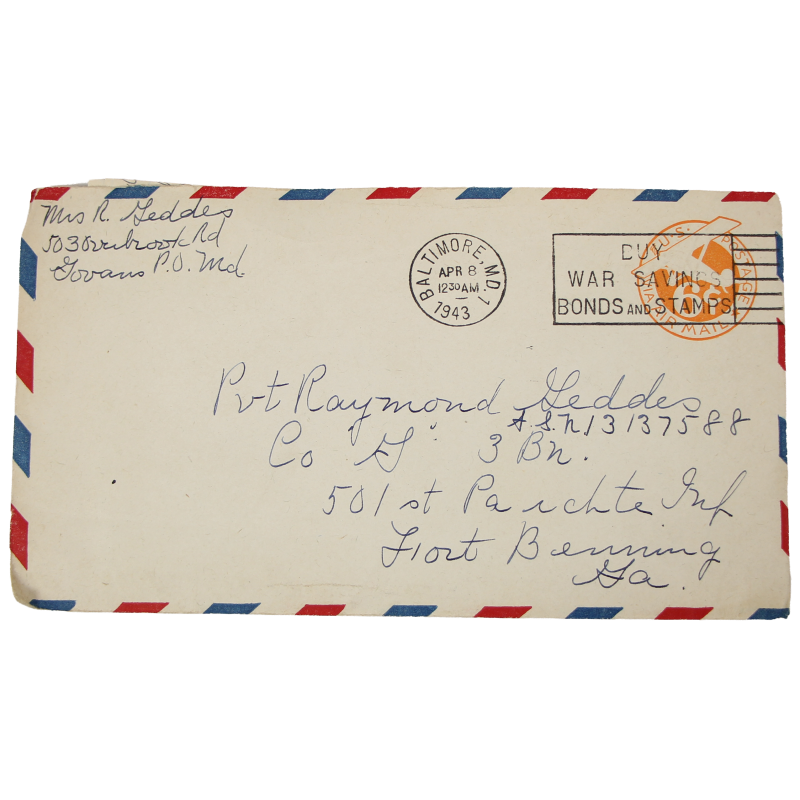 Mrs R. Geddes
503 Overbrook Rd
Govans P.O. Md.
BALTIMORE, MD. 1
APR 8
1230 AM
1943
BUY
WAR SAVINGS
BONDS AND STAMPS
U.S. POSTAGE
VIA AIR MAIL
6¢
Pvt Raymond Geddes
A.S.N. 13137588
Co "G" 3 Bn.
501st Parchte Inf
Fort Benning
Ga.